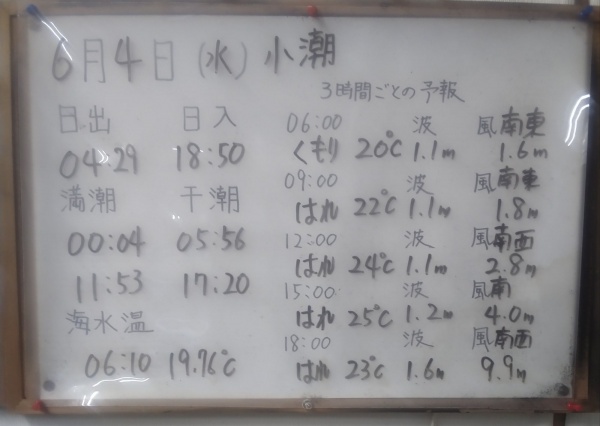 6月4日(水)小潮
3時間ごとの予報
日出 日入
04:29 18:50
満潮 干潮
00:04 05:56
11:53 17:20
海水温
06:10 19.76℃
06:00 波 風南東
くもり 20℃ 1.1m 1.6m
09:00 波 風南東
はれ 22℃ 1.1m 1.8m
12:00 波 風南西
はれ 24℃ 1.1m 2.8m
15:00 波 風南
はれ 25℃ 1.2m 4.0m
18:00 波 風南西
はれ 23℃ 1.6m 9.9m